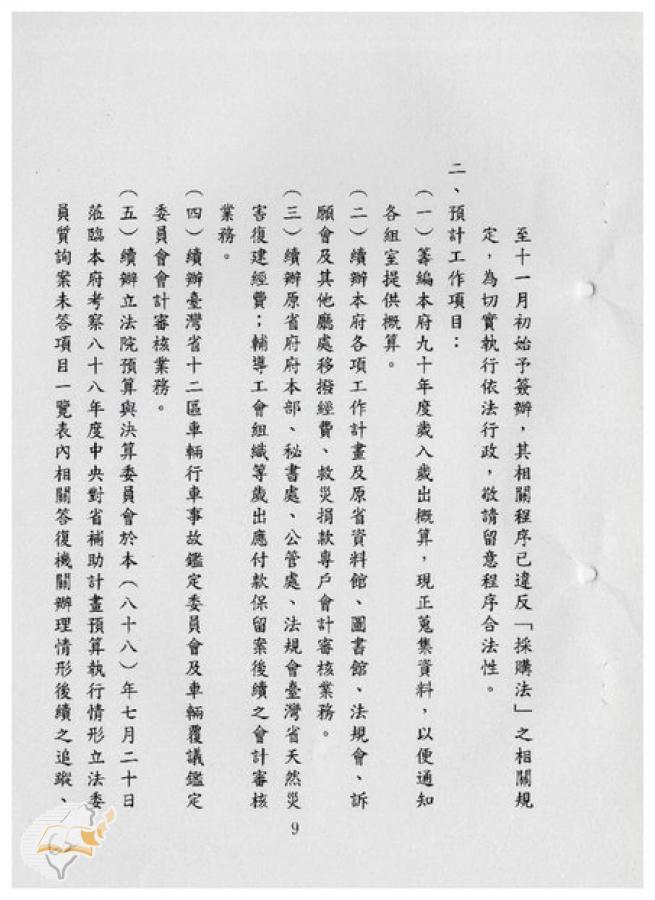 至十一月初始予簽辦，其相關程序已違反「採購法」之相關規
定，為切實執行依法行政，敬請留意程序合法性。
二、預計工作項目：
（一）籌編本府九十年度歲入歲出概算，現正蒐集資料，以便通知
各組室提供概算。
（二）續辦本府各項工作計畫及原省資料館、圖書館、法規會、訴
願會及其他廳處移撥經費、救災捐款專戶會計審核業務。
（三）續辦原省府府本部、秘書處、公管處、法規會臺灣省天然災
害復建經費；輔導工會組織等歲出應付款保留案後續之會計審核
業務。
（四）續辦臺灣省十二區車輛行車事故鑑定委員會及車輛覆議鑑定
委員會會計審核業務。
（五）續辦立法院預算與決算委員會於本（八十八）年七月二十日
蒞臨本府考察八十八年度中央對省補助計畫預算執行情形立法委
員質詢案未答項目一覽表內相關答復機關辦理情形後續之追蹤、
9